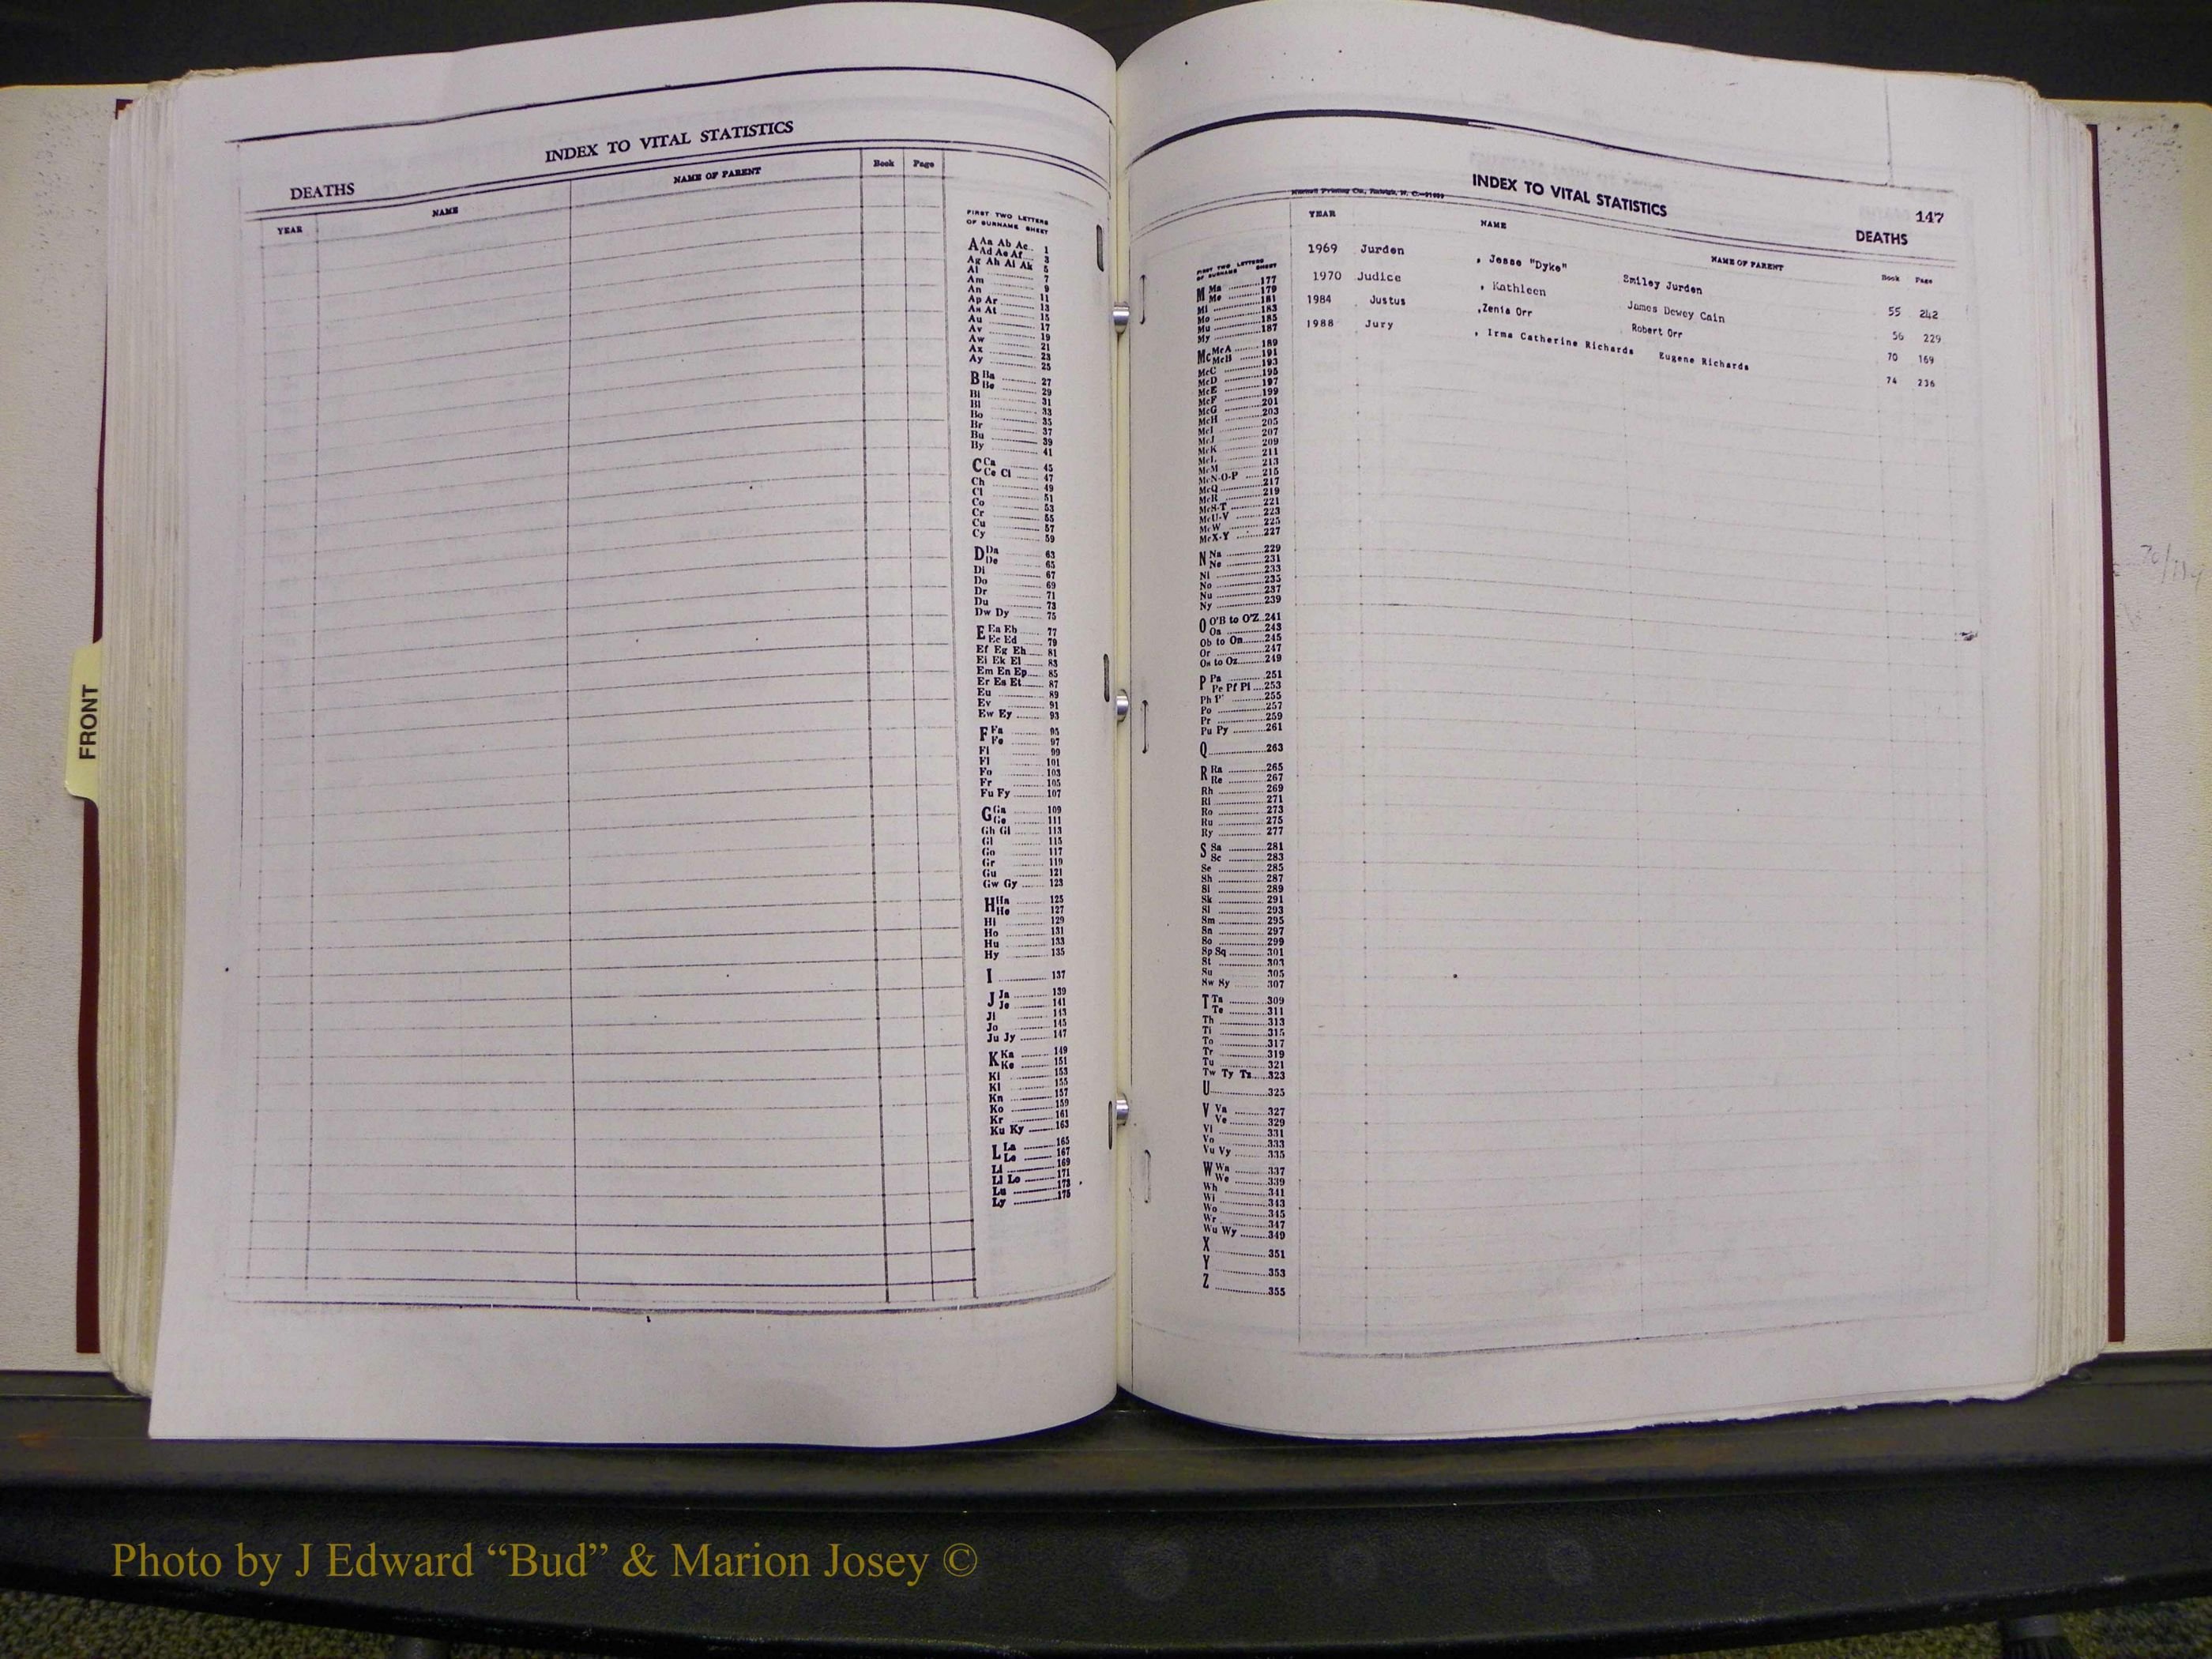 INDEX TO VITAL STATISTICS
DEATHS
YEAR NAME NAME OF PARENT Book Page
FIRST TWO LETTERS
OF SURNAME SHEET
A Aa Ab Ac 1
Ad Ae Af 3
Ag Ah Ai Ak 5
Al 7
Am 9
An 11
Ap Ar 13
As At 15
Au 17
Av 19
Aw 21
Ax 23
Ay 25
B Ba 27
Be 29
Bi 31
Bl 33
Bo 35
Br 37
Bu 39
By 41
C Ca 45
Ce Ci 47
Ch 49
Cl 51
Co 53
Cr 55
Cu 57
Cy 59
D Da 63
De 65
Di 67
Do 69
Dr 71
Du 73
Dw Dy 75
E Ea Eb 77
Ec Ed 79
Ef Eg Eh 81
Ei Ek El 83
Em En Ep 85
Er Es Et 87
Eu 89
Ev 91
Ew Ey 93
F Fa 95
Fe 97
Fi 99
Fl 101
Fo 103
Fr 105
Fu Fy 107
G Ga 109
Ge 111
Gh Gi 113
Gl 115
Go 117
Gr 119
Gu 121
Gw Gy 123
H Ha 125
He 127
Hi 129
Ho 131
Hu 133
Hy 135
I 137
J Ja 139
Je 141
Ji 143
Jo 145
Ju Jy 147
K Ka 149
Ke 151
Ki 153
Kl 155
Kn 157
Ko 159
Kr 161
Ku Ky 163
L La 165
Le 167
Li 169
Ll Lo 171
Lu 173
Ly 175
FRONT
Printing Co., Raleigh, N. C.
INDEX TO VITAL STATISTICS
147
DEATHS
YEAR NAME NAME OF PARENT Book Page
1969 Jurden , Jesse "Dyke" Smiley Jurden 55 242
1970 Judice , Kathleen James Dewey Cain 56 229
1984 Justus ,Zenia Orr Robert Orr 70 169
1988 Jury , Irma Catherine Richards Eugene Richards 74 236
FIRST TWO LETTERS
OF SURNAME SHEET
M Ma 177
Me 179
Mi 181
Mo 183
Mu 185
My 187
Mc McA 189
McB 191
McC 193
McD 195
McE 197
McF 199
McG 201
McH 203
McI 205
McJ 207
McK 209
McL 211
McM 213
McN-O-P 215
McQ 217
McR 219
McS-T 221
McU-V 223
McW 225
McX-Y 227
N Na 229
Ne 231
Ni 233
No 235
Nu 237
Ny 239
O O'B to O'Z 241
Oa 243
Ob to On 245
Or 247
Os to Oz 249
P Pa 251
Pe Pf Pi 253
Ph 255
Po 257
Pr 259
Pu Py 261
Q 263
R Ra 265
Re 267
Rh 269
Ri 271
Ro 273
Ru 275
Ry 277
S Sa 281
Sc 283
Se 285
Sh 287
Si 289
Sk 291
Sl 293
Sm 295
Sn 297
So 299
Sp Sq 301
St 303
Su 305
Sw Sy 307
T Ta 309
Te 311
Th 313
Ti 315
To 317
Tr 319
Tu 321
Tw Ty Tz 323
U 325
V Va 327
Ve 329
Vi 331
Vo 333
Vu Vy 335
W Wa 337
We 339
Wh 341
Wi 343
Wo 345
Wr 347
Wu Wy 349
X 351
Y 353
Z 355
Photo by J Edward “Bud” & Marion Josey ©